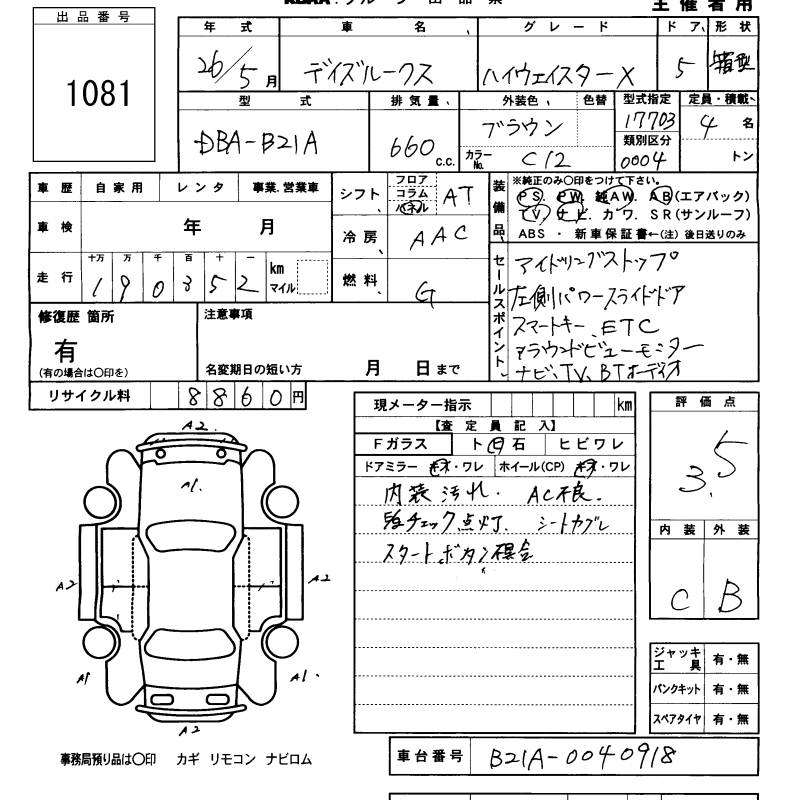 出品番号
1081
主催者用
年式 車名 グレード ドア 形状
26/5月 デイズルークス ハイウェイスターX 5 箱型
型式 排気量 外装色 色替 型式指定 定員・積載
DBA-B21A 660 c.c. ブラウン 17703 4名
カラーNo. C12 類別区分 0004 トン
車歴 自家用 レンタ 事業.営業車
車検 年 月
走行 十万 万 千 百 十 一 km マイル
1 9 0 3 5 2
シフト フロア コラム パネル AT
冷房 AAC
燃料 G
装備品
※純正のみ〇印をつけて下さい。
PS. PW. 純AW. AB(エアバック)
TV. ナビ. カワ. SR(サンルーフ)
ABS ・ 新車保証書←(注) 後日送りのみ
セールスポイント
アイドリングストップ
左側パワースライドドア
スマートキー. ETC
アラウンドビューモニター
ナビ、TV、BTオーディオ
修復歴 箇所
有
(有の場合は〇印を)
注意事項
名変期日の短い方 月 日まで
リサイクル料 8860円
現メーター指示 km
【査定員記入】
Fガラス ト 石 ヒビワレ
ドアミラー キズ・ワレ ホイール(CP) キズ・ワレ
内装汚れ. AC不良.
チェック点灯. シート
スタートボタン
評価点
3.5
内装 外装
C B
ジャッキ 工具 有・無
パンクキット 有・無
スペアタイヤ 有・無
A2
A1.
A2
A2
A1
A1.
A2
事務局預り品は〇印 カギ リモコン ナビロム
車台番号 B21A-0040918